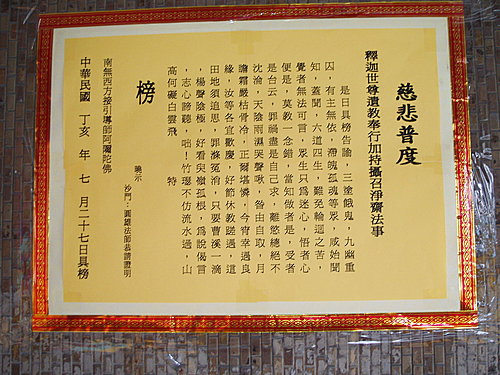 慈悲普度
釋迦世尊遺教奉行加持攝召淨齋法事
是日具榜告諭，三塗餓鬼，九幽重
囚，有主無依，滯魄孤魂等眾，咸始聞
知，蓋聞，六道四生，難免輪迴之苦，
覺者無法可言，眾生只爲迷心，悟者心
便是，莫教一念錯，當知做者是，受者
是台云，罪福盡是自己求，難慾總絕不
沈淪，天陰雨濕哭聲啾，咎由自取，月
膽霜嚴枯骨冷，正爾堪憐，今宵幸遇良
緣，汝等各宜歡慶，好節休教蹉過，這
田地須追思，罪滌冤消，只要曹溪一滴
，楊聲陰極，好看尖嶺孤根，為說偈言
，志心諦聽，咄！竹堰不仿流水過，山
高何礙白雲飛　　特
榜
曉示
沙門：圓雄法師恭請證明
南無西方接引導師阿彌陀佛
中華民國　丁亥　年　七　月二十七日具榜